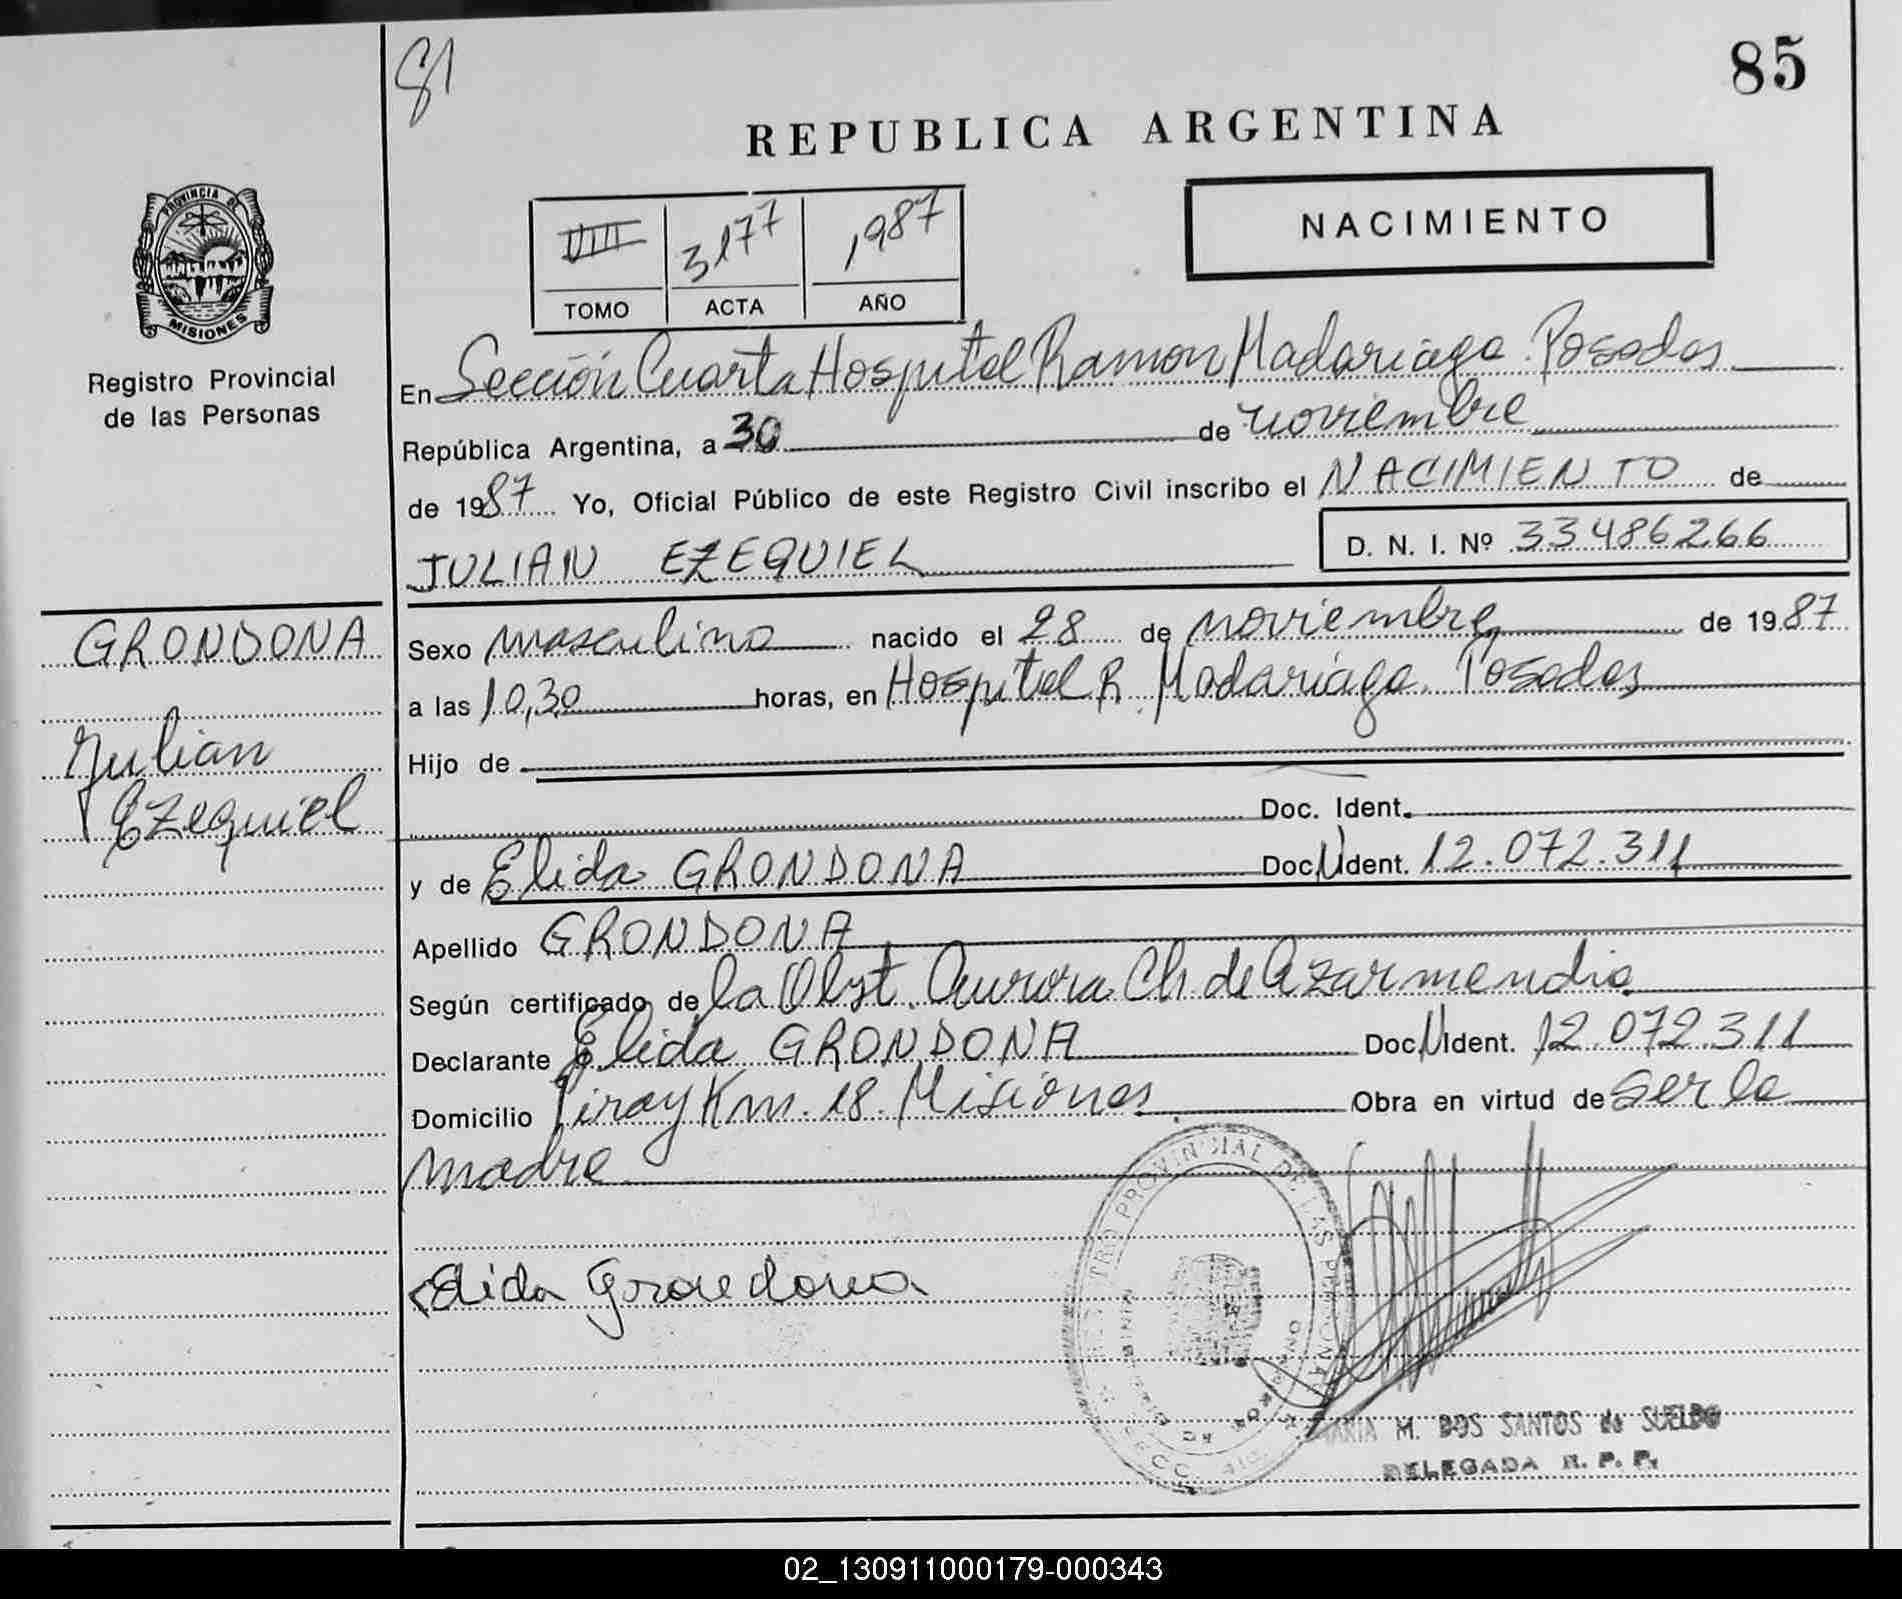 81
85
REPUBLICA ARGENTINA
PROVINCIA DE
MISIONES
Registro Provincial
de las Personas
VIII 3177 1987
TOMO ACTA AÑO
NACIMIENTO
En Sección Cuarta Hospital Ramon Madariaga. Posadas
República Argentina, a 30 de noviembre
de 1987 Yo, Oficial Público de este Registro Civil inscribo el NACIMIENTO de
JULIAN EZEQUIEL D. N. I. Nº 33486266
GRONDONA
Julian
Ezequiel
Sexo masculino nacido el 28 de noviembre de 1987
a las 10,30 horas, en Hospital R. Madariaga. Posadas
Hijo de
Doc. Ident.
y de Elida GRONDONA Doc. Ident. 12.072.311
Apellido GRONDONA
Según certificado de la Obst. Aurora Ch de Azarmendia
Declarante Elida GRONDONA Doc. Ident. 12.072.311
Domicilio Piray Km. 18. Misiones Obra en virtud de ser la
madre
Elida Grondona
PROVINCIAL DE LAS PERSONAS
MARIA M. DOS SANTOS de SUELDO
DELEGADA R. P. P.
02_130911000179-000343